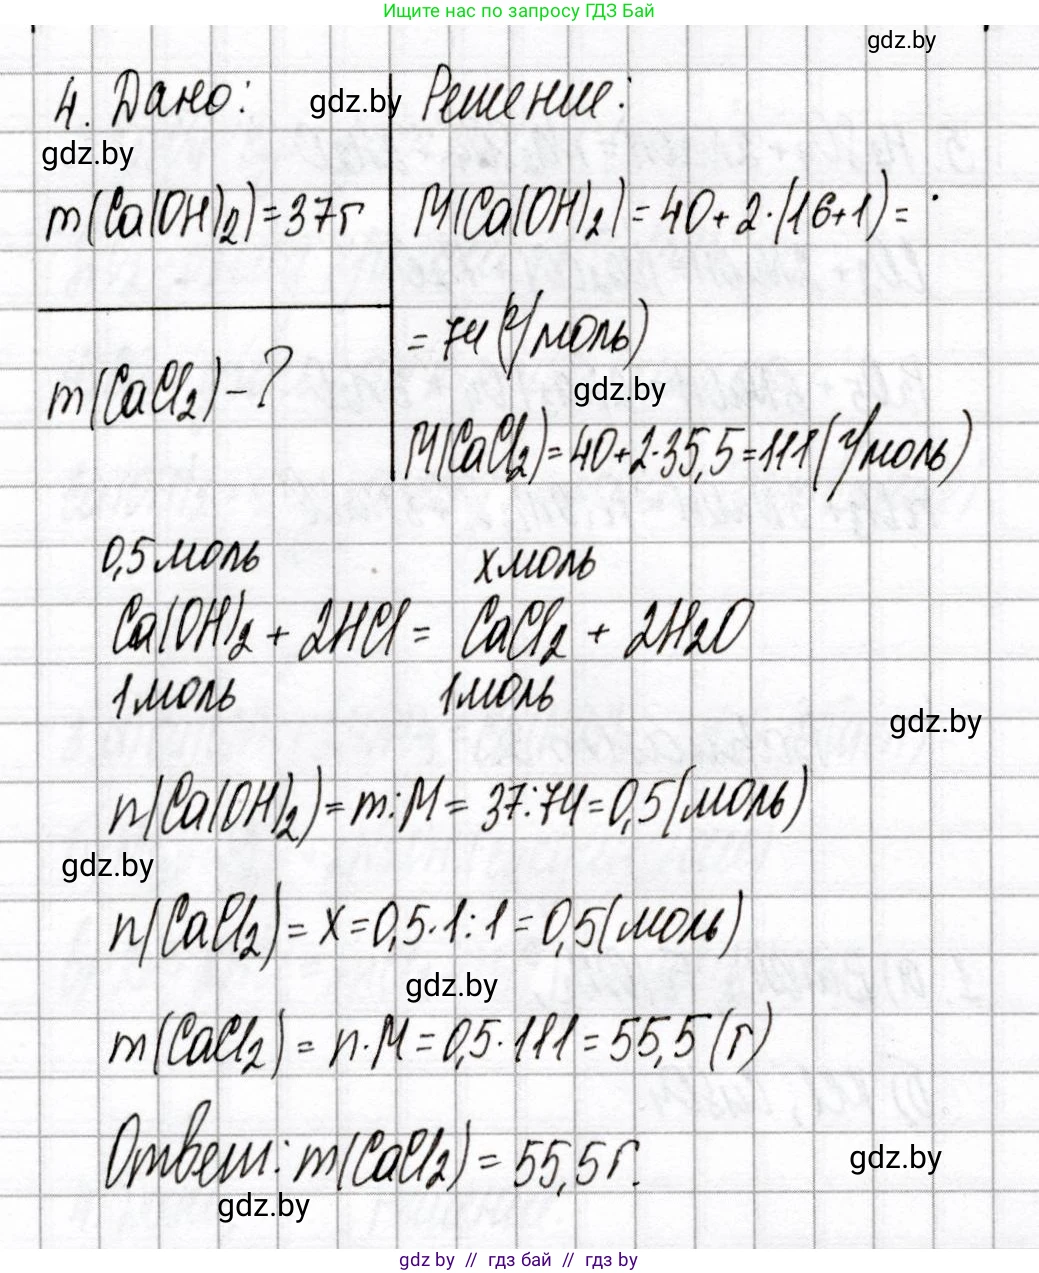 Ищите нас по запросу ГДЗ Бай
gdz.by
4. Дано:
gdz.by
Решение:
gdz.by
m(Ca(OH)₂)=37г
M(Ca(OH)₂)=40+2·(16+1)=
=74(г/моль)
m(CaCl₂)-?
gdz.by
M(CaCl₂)=40+2·35,5=111(г/моль)
0,5моль хмоль
Ca(OH)₂+2HCl= CaCl₂+2H₂O
1моль 1моль
gdz.by
n(Ca(OH)₂)=m:M=37:74=0,5(моль)
gdz.by
n(CaCl₂)=x=0,5·1:1=0,5(моль)
gdz.by
m(CaCl₂)=n·M=0,5·111=55,5(г)
Ответ: m(CaCl₂)=55,5г.
gdz.by
gdz.by
gdz by // гдз бай // гдз by